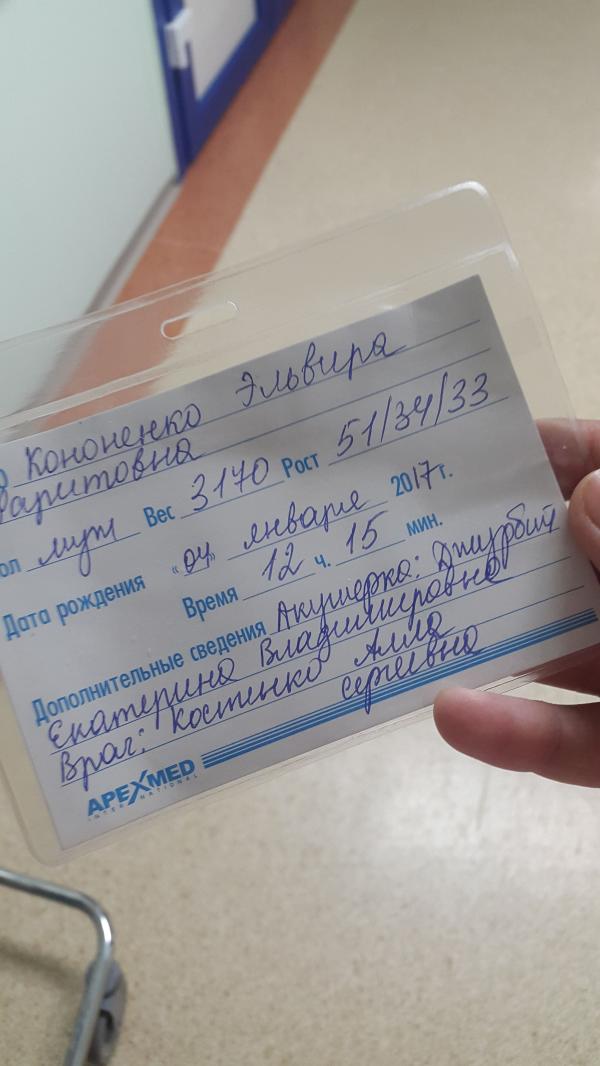 Кононенко Эльвира
Фаритовна
ол муж Вес 3170 Рост 51/34/33
Дата рождения «04» января 2017 г.
Время 12 ч. 15 мин.
Дополнительные сведения Акушерка: Джурбий
Екатерина Владимировна
Врач: Костенко Алла
Сергеевна
APEXMED
INTERNATIONAL